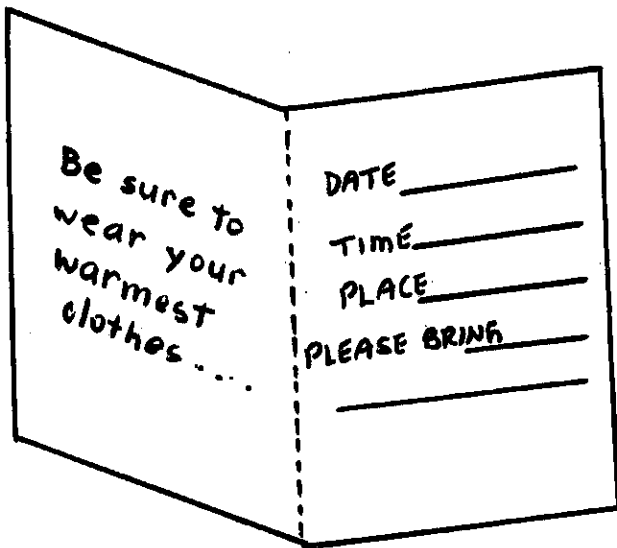 Be sure to
wear your
warmest
clothes....
DATE
TIME
PLACE
PLEASE BRING